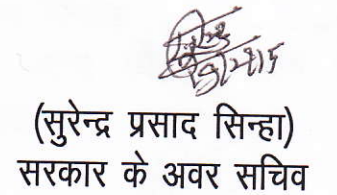 (सुरेन्द्र प्रसाद सिन्हा)
सरकार के अवर सचिव